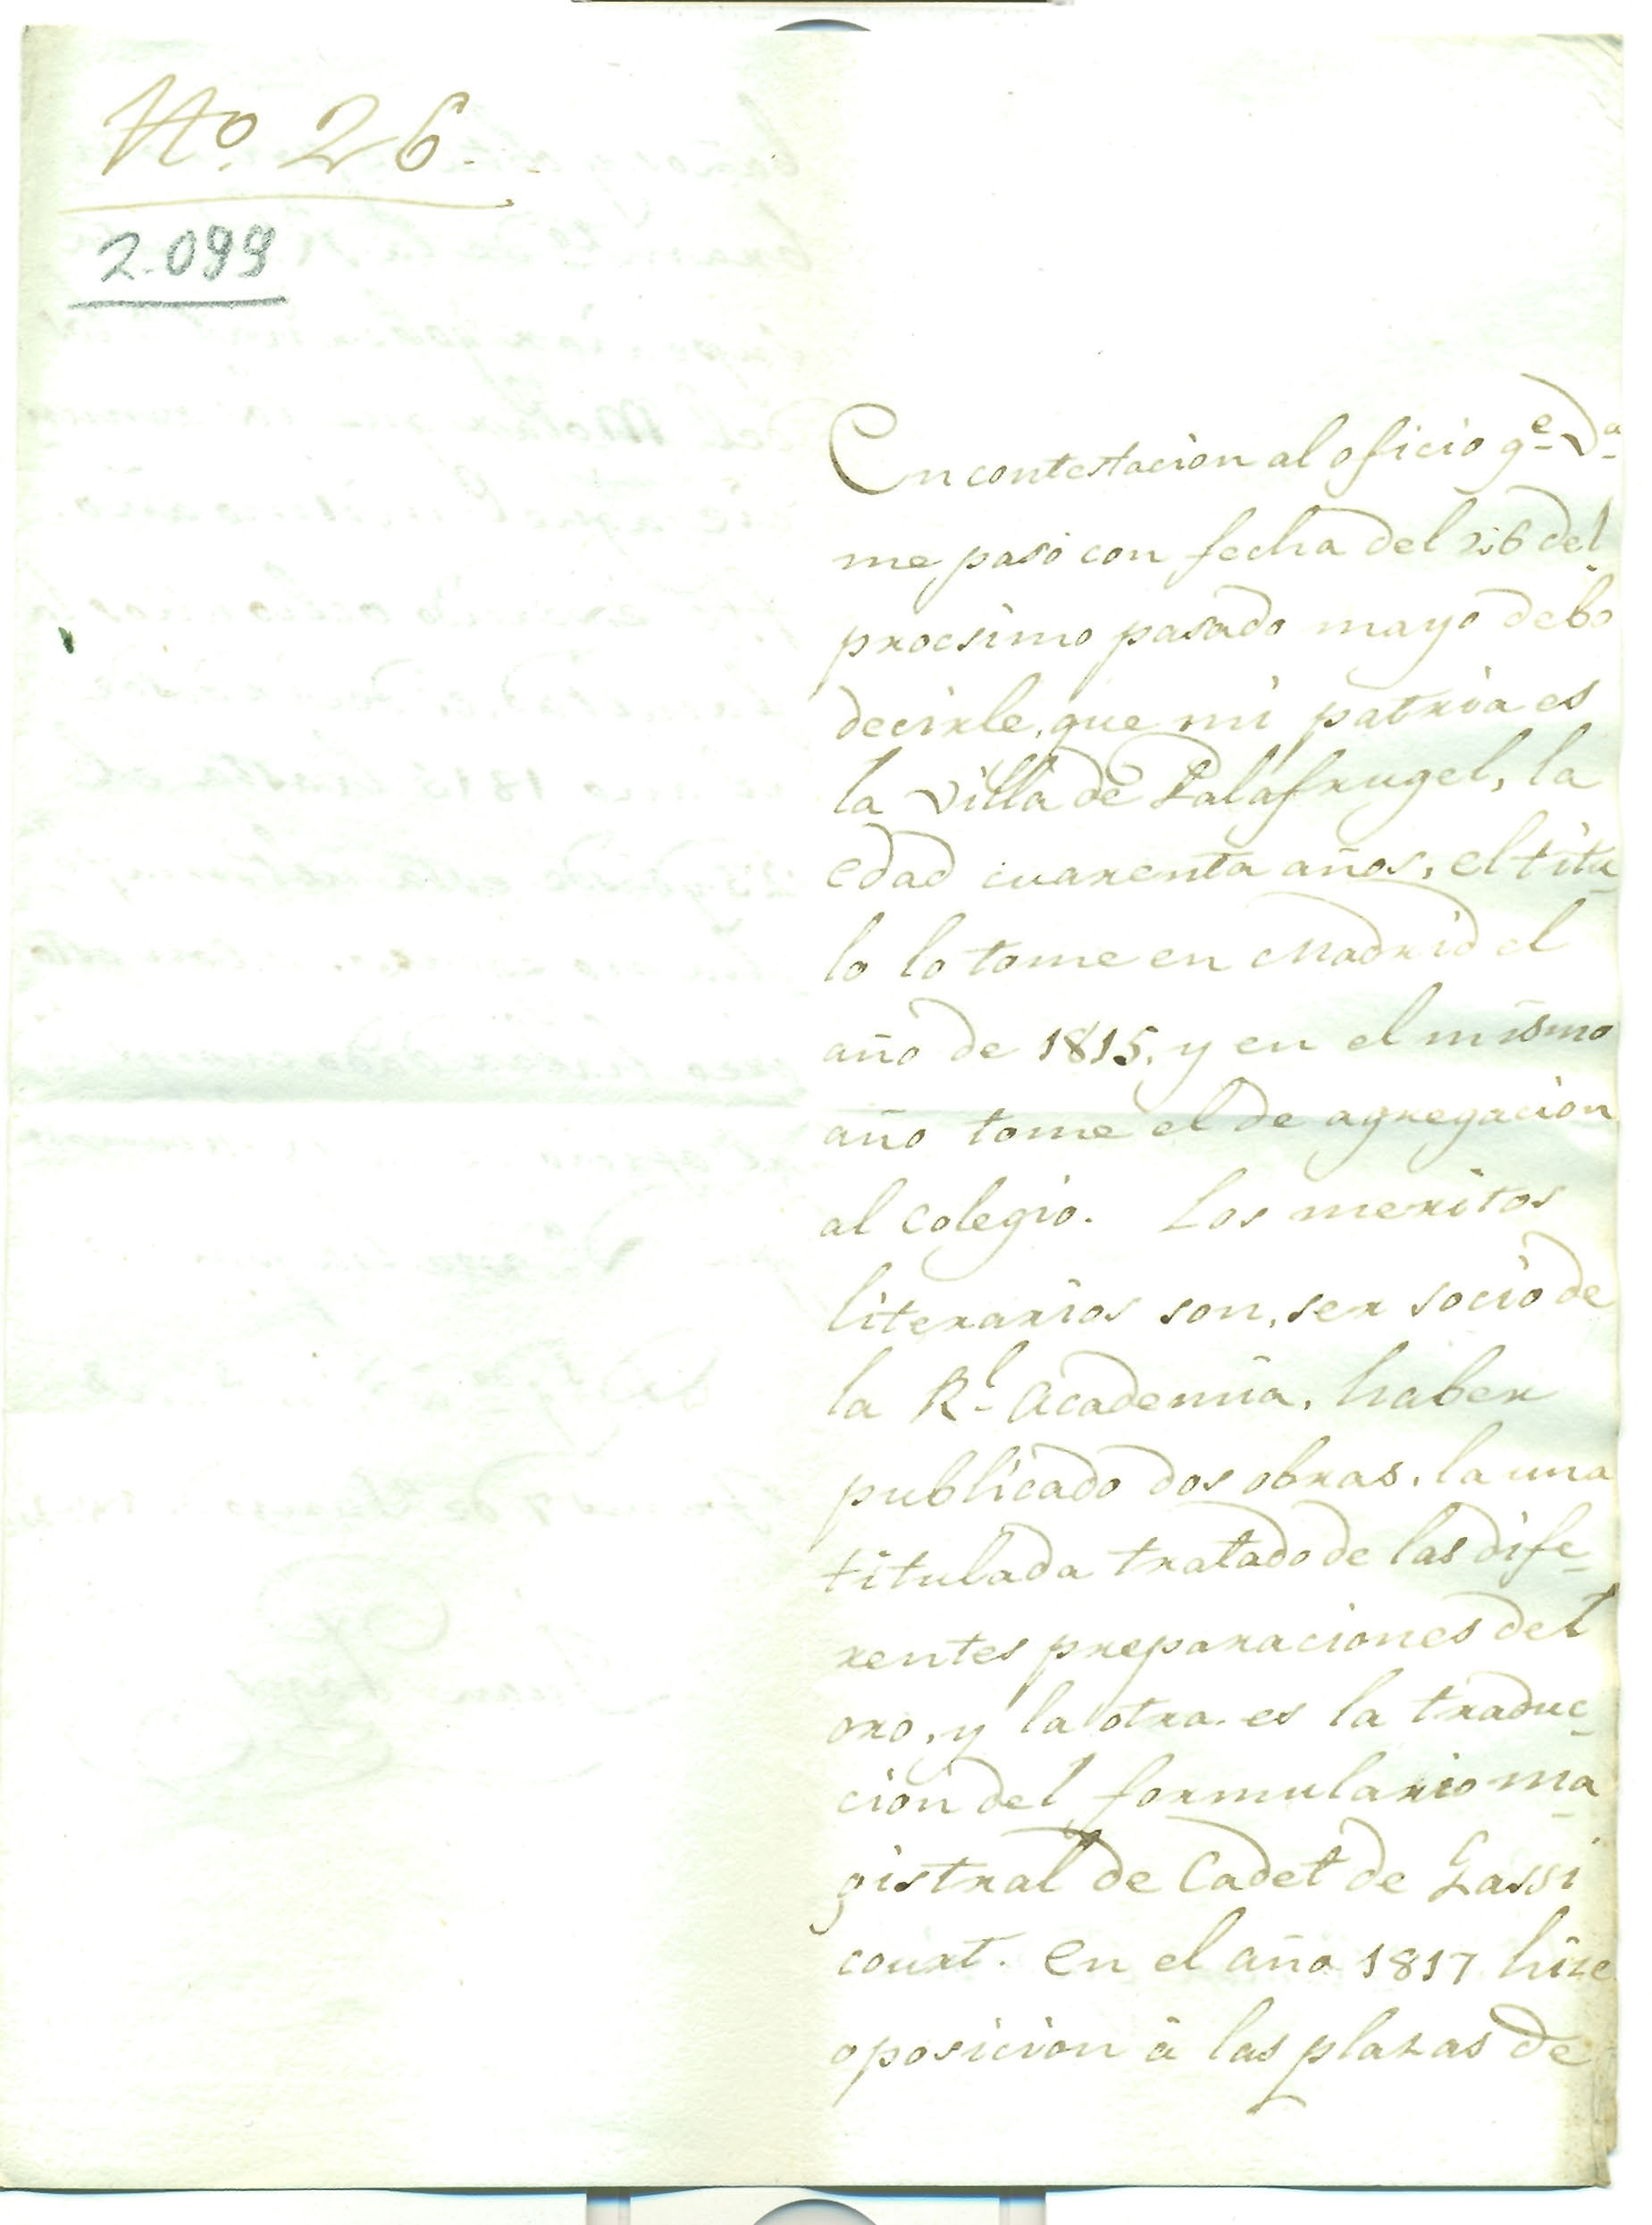 No. 26.
2.099
En contestacion al oficio qe. Va.
me pasó con fecha del 26 del
procsimo pasado mayo debo
decirle, que mi patria es
la villa de Palafrugel, la
edad cuarenta años, el titu-
lo lo tome en Madrid el
año de 1815, y en el mismo
año tome el de agregacion
al colegio. Los meritos
literarios son, ser socio de
la Rl. Academia, haber
publicado dos obras, la una
titulada tratado de las dife-
rentes preparaciones del
oro, y la otra es la traduc-
cion del formulario ma-
gistral de Cadet de Gassi
court. En el año 1817 hize
oposicion á las plazas de